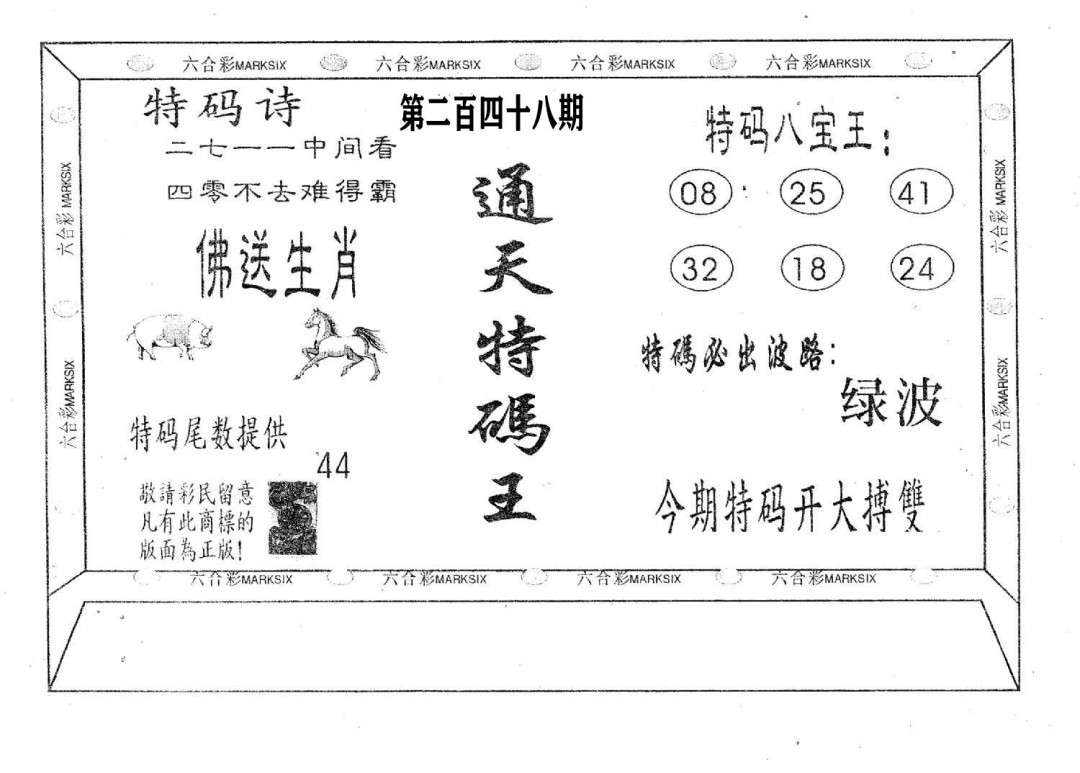 六合彩MARKSIX 六合彩MARKSIX 六合彩MARKSIX 六合彩MARKSIX
特码诗
二七一一中间看
四零不去难得霸
佛送生肖
特码尾数提供
44
敬請彩民留意
凡有此商標的
版面為正版!
第二百四十八期
通天特碼王
特码八宝王:
08 25 41
32 18 24
特碼必出波路:
绿波
今期特码开大搏雙
六合彩MARKSIX
六合彩MARKSIX
六合彩MARKSIX
六合彩MARKSIX
六合彩MARKSIX 六合彩MARKSIX 六合彩MARKSIX 六合彩MARKSIX